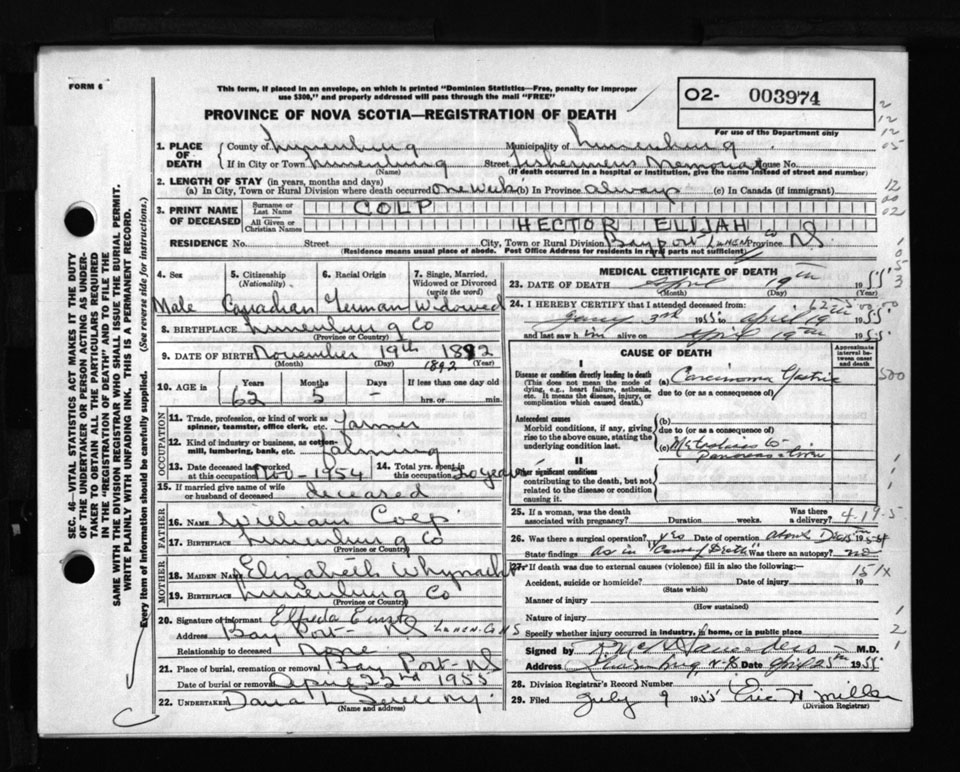 FORM 6
This form, if placed in an envelope, on which is printed "Dominion Statistics—Free, penalty for improper
use $300," and properly addressed will pass through the mail "FREE"
02- 003974
For use of the Department only
PROVINCE OF NOVA SCOTIA—REGISTRATION OF DEATH
1. PLACE OF DEATH
County of Lunenburg Municipality of Lunenburg
If in City or Town Lunenburg Street Fishermens Memorial House No.
(Name) (If death occurred in a hospital or institution, give the name instead of street and number)
2. LENGTH OF STAY (in years, months and days)
(a) In City, Town or Rural Division where death occurred One week (b) In Province always (c) In Canada (if immigrant)
3. PRINT NAME OF DECEASED
Surname or Last Name COLP
All Given or Christian Names HECTOR ELIJAH
RESIDENCE No. Street City, Town or Rural Division Bayport Lunen Co Province NS
(Residence means usual place of abode. Post Office Address for residents in rural parts not sufficient)
4. Sex Male
5. Citizenship (Nationality) Canadian
6. Racial Origin German
7. Single, Married, Widowed or Divorced (write the word) Widowed
8. BIRTHPLACE Lunenburg Co
(Province or Country)
9. DATE OF BIRTH November 19th 1892
(Month) (Day) 1892 (Year)
10. AGE in Years 62 Months 5 Days – If less than one day old hrs. or min.
OCCUPATION
11. Trade, profession, or kind of work as spinner, teamster, office clerk, etc. Farmer
12. Kind of industry or business, as cotton-mill, lumbering, bank, etc. Farming
13. Date deceased last worked at this occupation Nov - 1954
14. Total yrs. spent in this occupation 20 years
15. If married give name of wife or husband of deceased deceased
FATHER
16. NAME William Colp
17. BIRTHPLACE Lunenburg Co
(Province or Country)
MOTHER
18. MAIDEN NAME Elizabeth Whynacht
19. BIRTHPLACE Lunenburg Co
(Province or Country)
20. Signature of informant Elfreda Ernst
Address Bay Port- NS Lunen. Co NS
Relationship to deceased None
21. Place of burial, cremation or removal Bay Port- NS
Date of burial or removal April 22nd 1955
22. UNDERTAKER Dana L Sweeny
(Name and address)
MEDICAL CERTIFICATE OF DEATH
23. DATE OF DEATH April 19th 1955
(Month) (Day) (Year)
24. I HEREBY CERTIFY that I attended deceased from:
3rd 1955 to April 19th 1955
and last saw him alive on April 19th 1955
CAUSE OF DEATH
Approximate interval between cause and death
I
Disease or condition directly leading to death (a) Carcinoma Gastric
(This does not mean the mode of dying, e.g., heart failure, asthenia, etc. It means the disease, injury, or complication which caused death.)
due to (or as a consequence of)
Antecedent causes
Morbid conditions, if any, giving rise to the above cause, stating the underlying condition last.
(b)
due to (or as a consequence of)
(c) Metastasis to
Pancreas & liver
II
Other significant conditions
contributing to the death, but not related to the disease or condition causing it.
25. If a woman, was the death associated with pregnancy? Duration weeks. Was there a delivery? 4-19-5
26. Was there surgical operation? yes Date of operation about Dec 1954
State findings As in "Cause of Death" Was there an autopsy? no
27. If death was due to external causes (violence) fill in also the following:— 151X
Accident, suicide or homicide? Date of injury 19
(State which)
Manner of injury
(How sustained)
Nature of injury
Specify whether injury occurred in industry, in home, or in public place
Signed by M.D.
Address Lunenburg N-S Date April 25th 1955
28. Division Registrar's Record Number
29. Filed July 9 1955 Eric W Miller
(Division Registrar)
SEC. 46—VITAL STATISTICS ACT MAKES IT THE DUTY
OF THE UNDERTAKER OR PERSON ACTING AS UNDER-
TAKER TO OBTAIN ALL THE PARTICULARS REQUIRED
IN THE "REGISTRATION OF DEATH" AND TO FILE THE
SAME WITH THE DIVISION REGISTRAR WHO SHALL ISSUE THE BURIAL PERMIT.
WRITE PLAINLY WITH UNFADING INK. THIS IS A PERMANENT RECORD.
Every item of information should be carefully supplied. (See reverse side for instructions.)